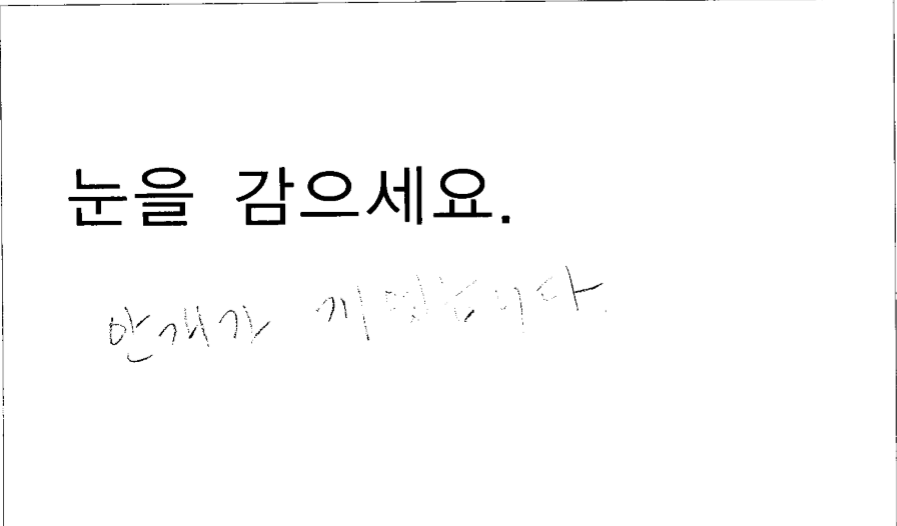 눈을 감으세요.
안개가 끼었습니다.